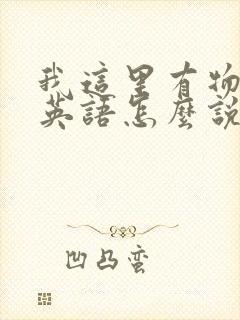 我這里有物
英語怎麼說
凹凸蛮